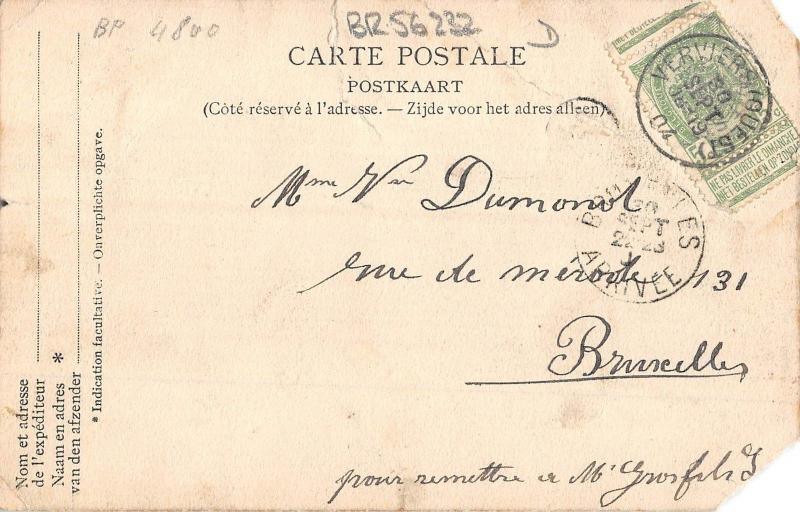 BP 4800
BR56232
D
CARTE POSTALE
POSTKAART
(Côté réservé à l'adresse. — Zijde voor het adres alleen)
VERVIERS (OUEST)
30
SEPT
04
NE PAS LIVRER LE DIMANCHE
NIET BESTELLEN OP ZONDAG
Mme Vve Dumont
BRUXELLES
30
SEPT
ARRIVÉE
rue de mérode, 131
Bruxelles
pour remettre à Mr Grosfils J
Nom et adresse
de l'expéditeur
Naam en adres *
van den afzender
* Indication facultative. — Onverplichte opgave.